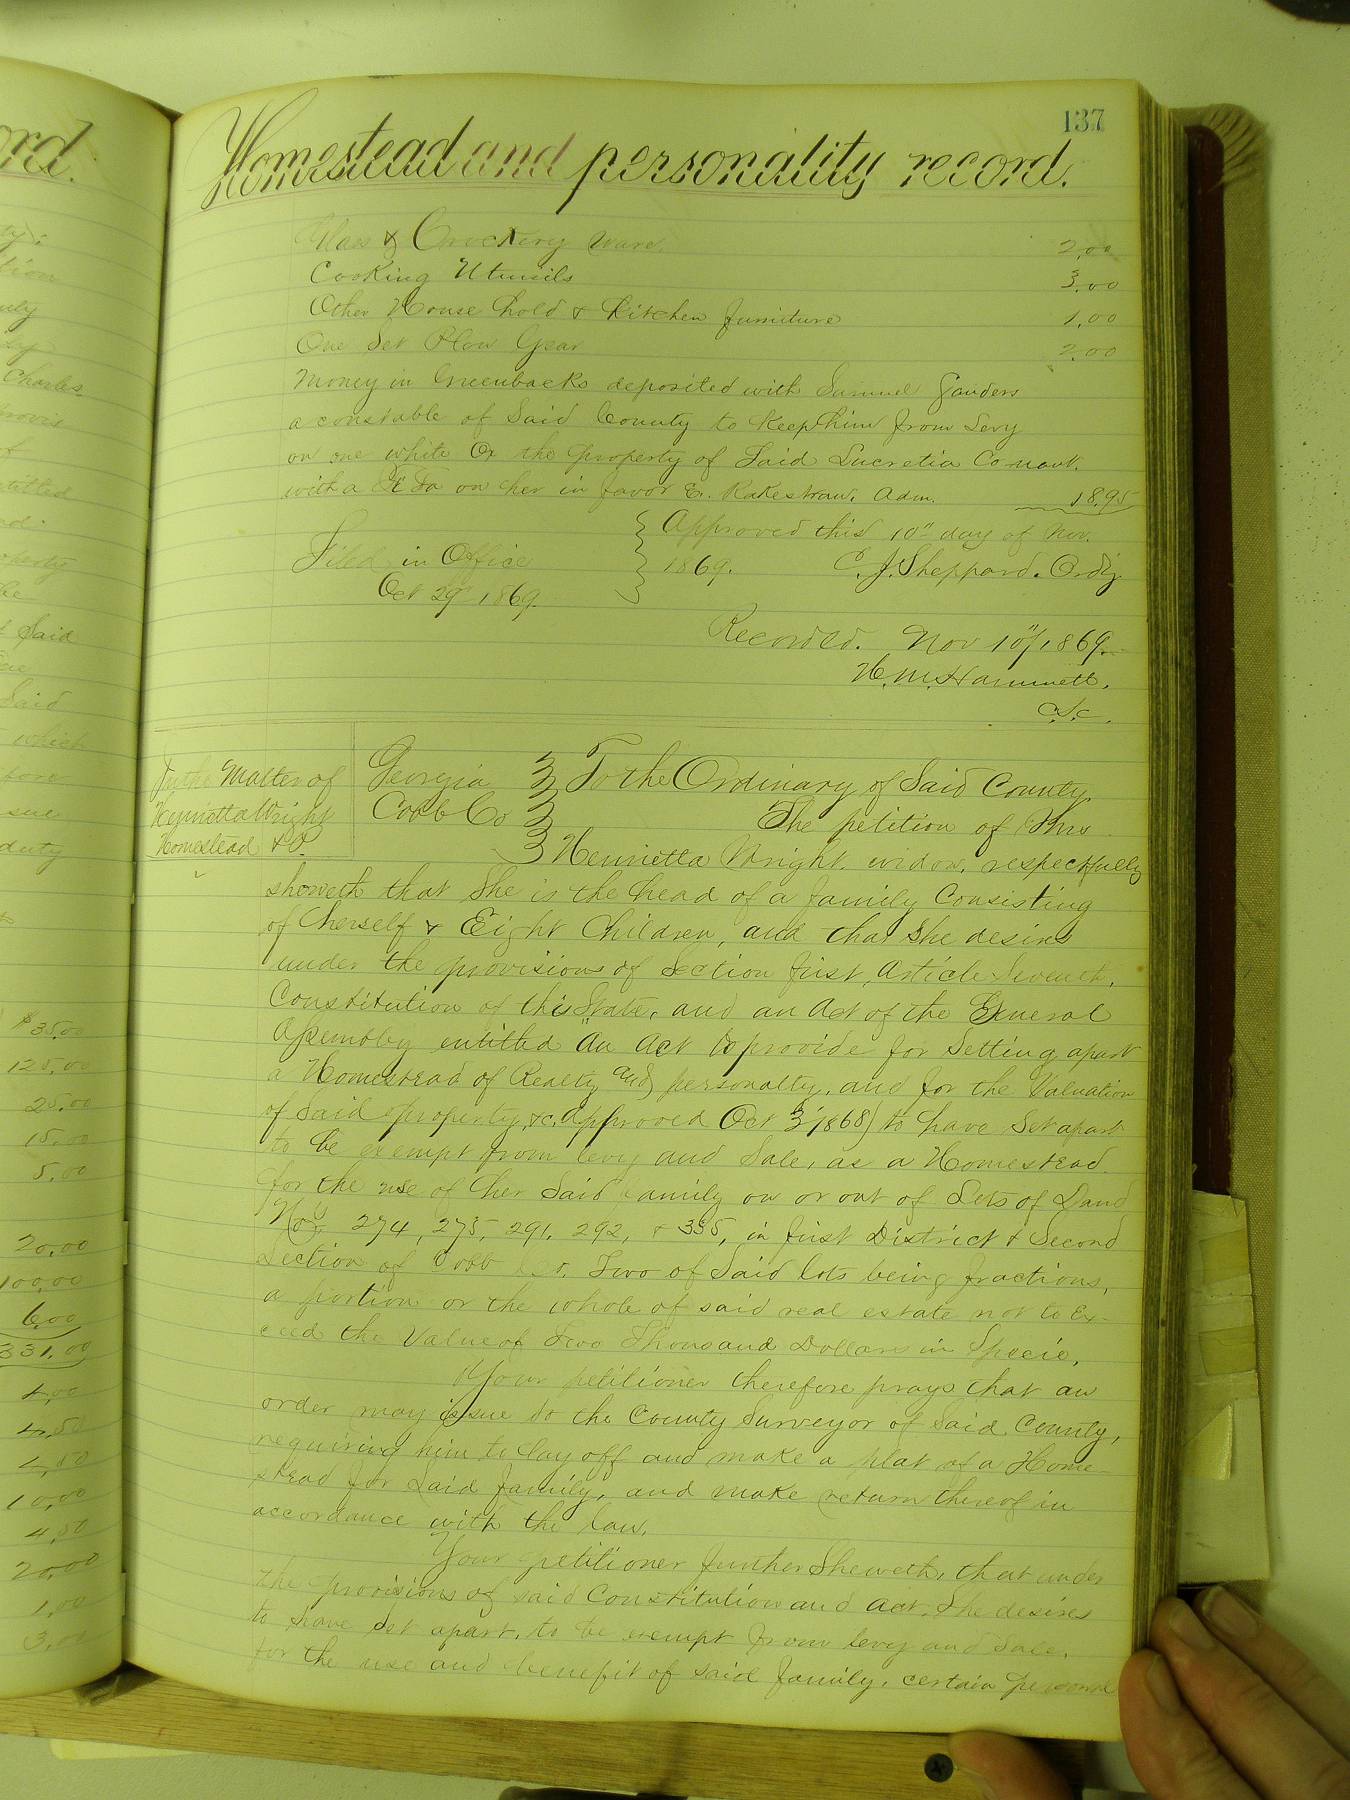 137
Homestead and personality record.
Glass & Crockery Ware 2.00
Cooking Utensils 3.00
Other House hold & Kitchen furniture 1.00
One Set Plow Gear 2.00
Money in Greenbacks deposited with Samuel Sanders
a constable of Said County to Keep him from Levy
on one white Ox the property of Said Lucretia
with a Fi Fa on her in favor E. Rakestraw. Adm. 18.95
Approved this 10" day of Nov.
Filed in Office 1869. C. J. Sheppard. Ordy
Oct 29" 1869.
Recorded. Nov 10"/1869.
H. M. Hammett.
C.S.C.
In the Matter of
Henrietta Wright
Homestead & P.
Georgia To the Ordinary of Said County
Cobb Co The petition of Mrs
Henrietta Wright. widow, respectfully
sheweth that She is the head of a family Consisting
of herself & Eight Children, and that She desires
under the provisions of Section first, Article Seventh,
Constitution of this State, and an Act of the General
Assembly entitled An Act to provide for Setting apart
a Homestead of Realty and personalty, and for the Valuation
of Said property, &c, approved Oct 3"/1868) to have Set apart
to be exempt from levy and Sale, as a Homestead
for the use of her Said family on or out of Lots of Land
Nos. 274, 275, 291, 292, & 335, in first District & Second
Section of Cobb Co. Two of Said lots being fractions,
a portion or the whole of said real estate not to Ex-
ceed the Value of Two Thousand Dollars in Specie.
Your petitioner therefore prays that an
order may issue to the County Surveyor of Said County,
requiring him to lay off and make a plat of a Home-
stead for Said family, and make return thereof in
accordance with the law.
Your petitioner further Sheweth, that under
the provisions of said Constitution and Act, She desires
to have Set apart, to be exempt from levy and Sale,
for the use and benefit of said family, certain personal
ord.
Charles
entitled
Said
Said
which
sue
duty
$35.00
125.00
25.00
15.00
5.00
20.00
100.00
6.00
331.00
4.50
10.00
4.50
20.00
1.00
3.00